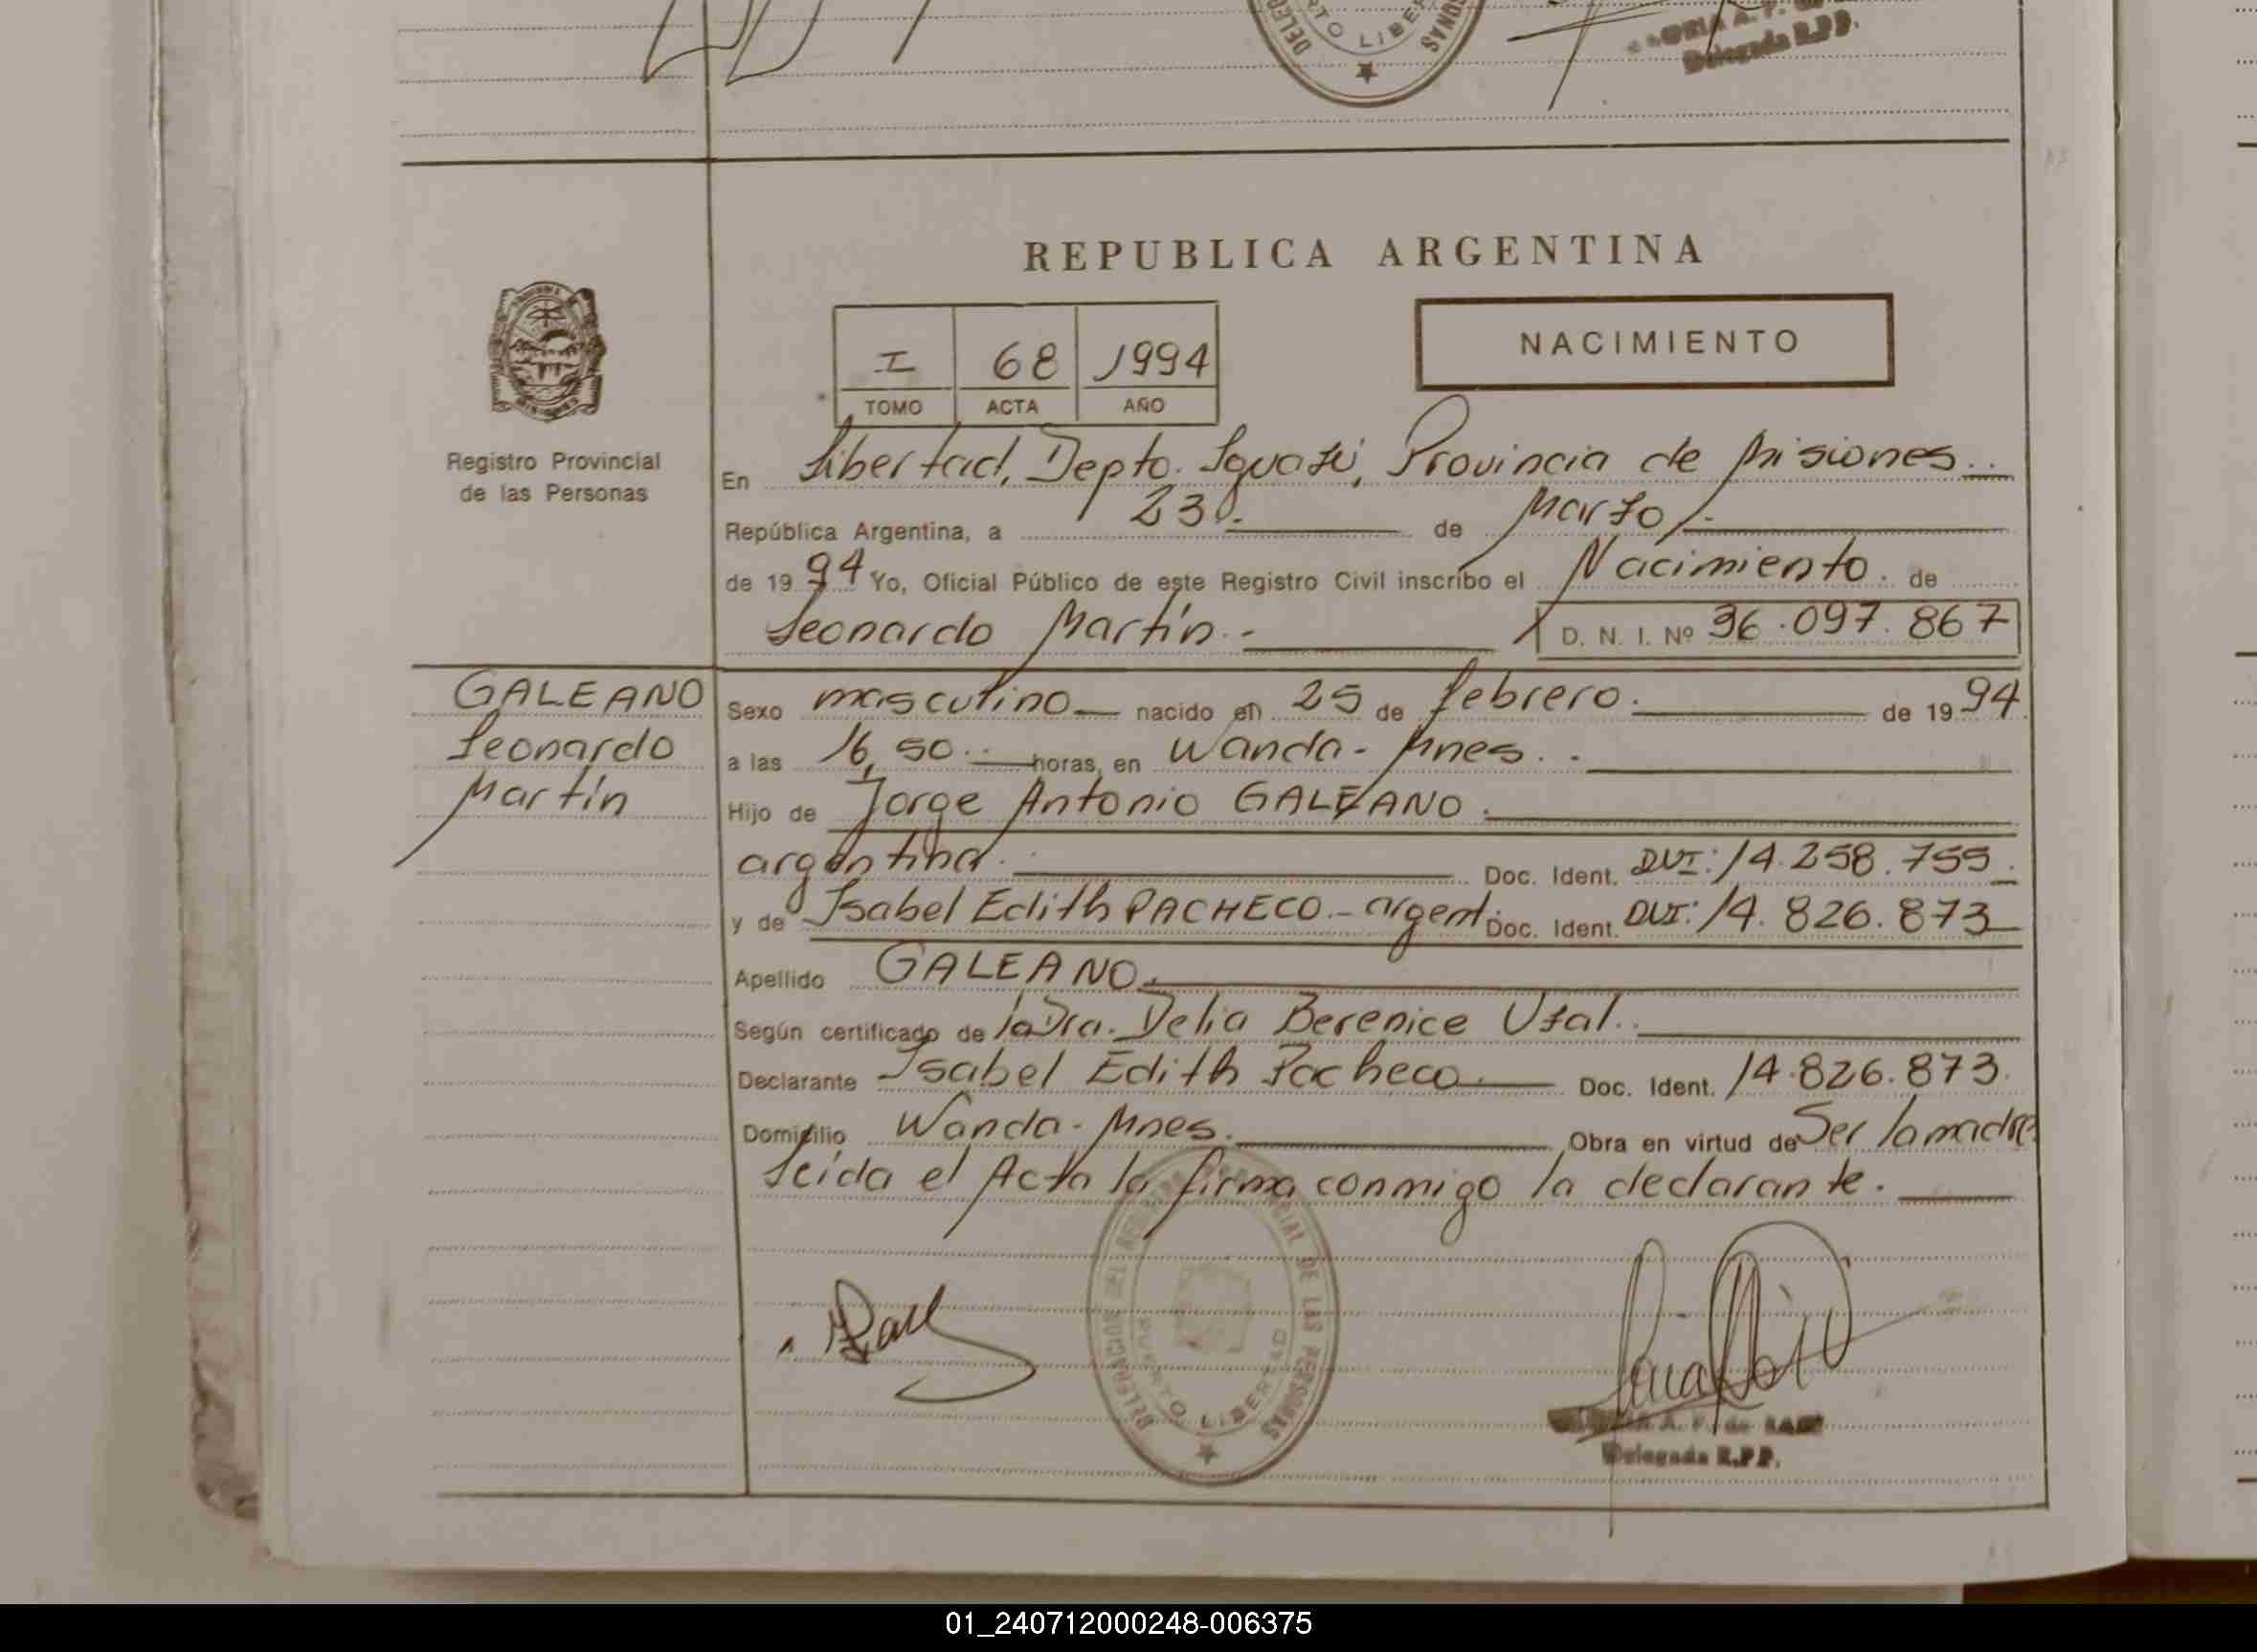 DELEG
RTO LIBER
SONAS
Delegada R.P.P.
REPUBLICA ARGENTINA
I 68 1994
TOMO ACTA AÑO
NACIMIENTO
Registro Provincial
de las Personas
En Libertad, Depto. Iguazú, Provincia de Misiones..
República Argentina, a 23.- de Marzo.-
de 1994 Yo, Oficial Público de este Registro Civil inscribo el Nacimiento. de
Leonardo Martín.- D. N. I. Nº 36.097.867
GALEANO
Leonardo
Martín
Sexo masculino nacido en 25 de febrero. de 1994
a las 16,50.. horas, en Wanda - Mnes. .-
Hijo de Jorge Antonio GALEANO.
argentina. Doc. Ident. DUI: 14.258.755.
y de Isabel Edith PACHECO.- argent. Doc. Ident. DUI: 14.826.873
Apellido GALEANO.
Según certificado de la Dra. Delia Berenice Uzal.
Declarante Isabel Edith Pacheco. Doc. Ident. 14.826.873.
Domicilio Wanda - Mnes. Obra en virtud de Ser la madre
Leída el Acta la firma conmigo la declarante.
DELEGACION DEL REGISTRO PROVINCIAL DE LAS PERSONAS
PUERTO LIBERTAD
Delegada R.P.P.
01_240712000248-006375